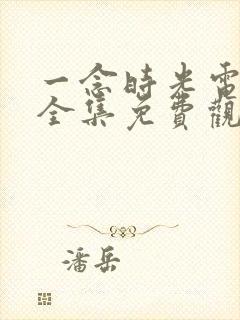 一念時光電
全集免費觀
潘岳